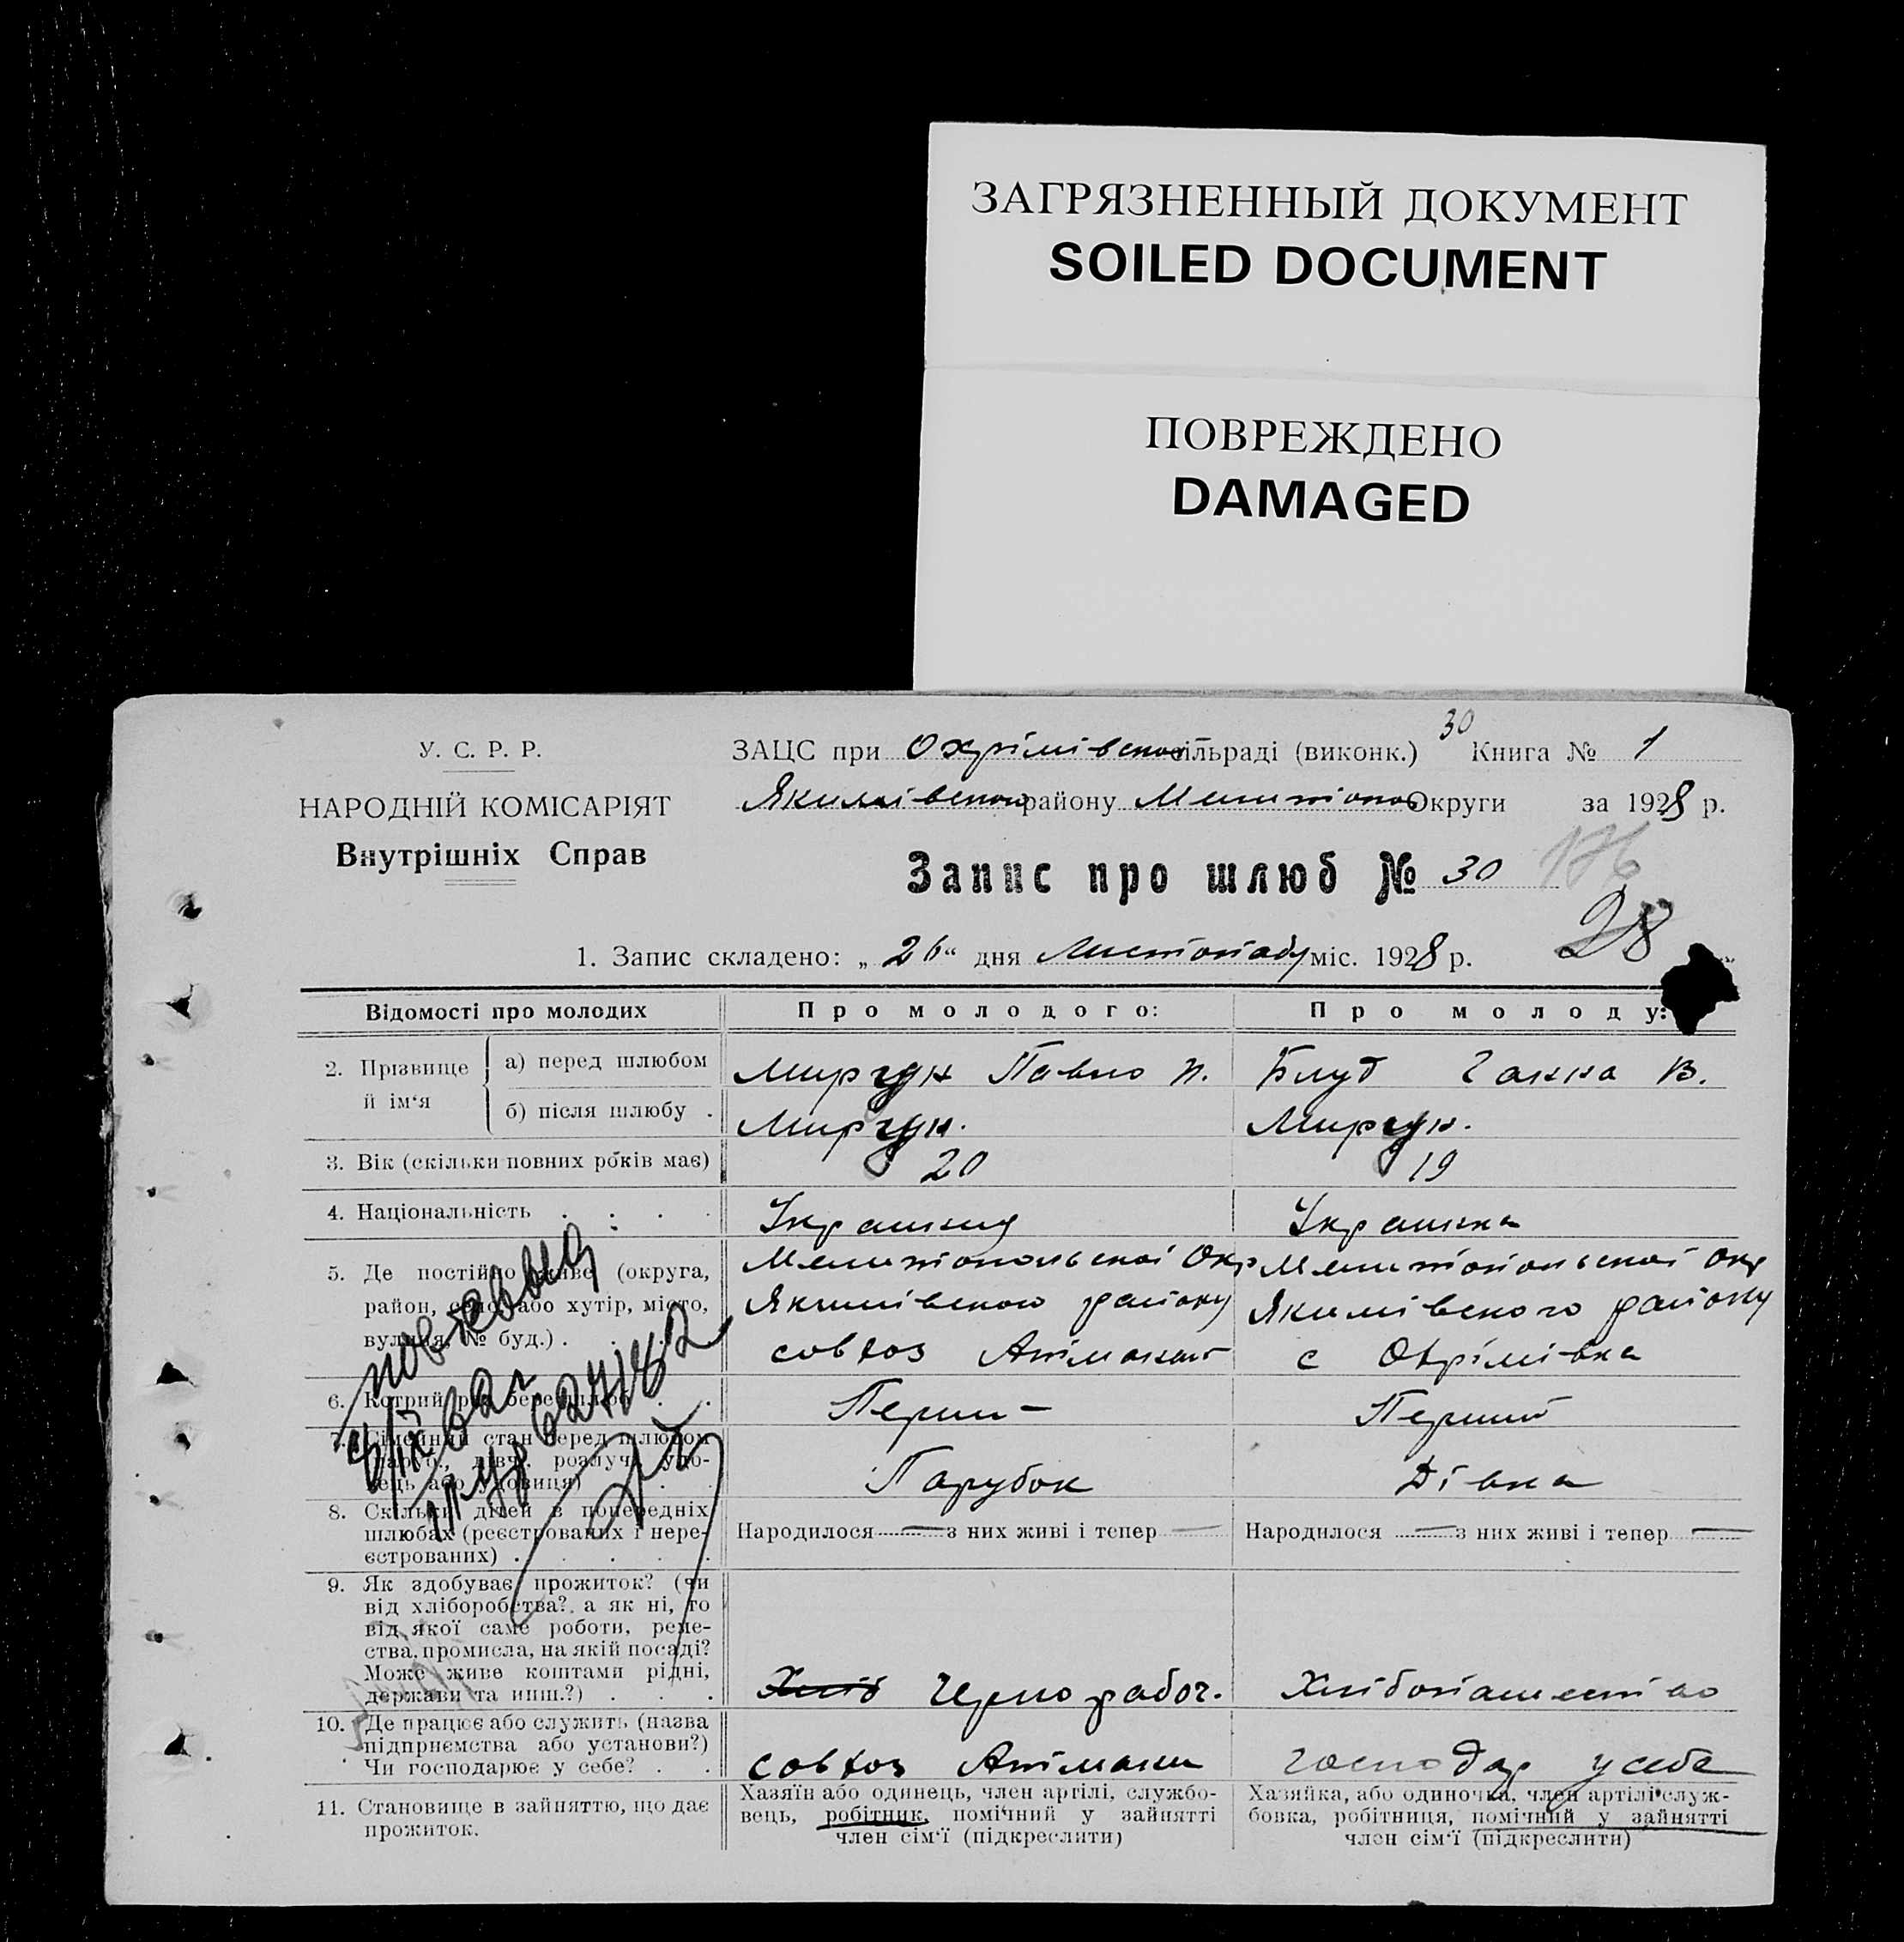 ЗАГРЯЗНЕННЫЙ ДОКУМЕНТ
SOILED DOCUMENT
ПОВРЕЖДЕНО
DAMAGED
30
У. С. Р. Р.
НАРОДНІЙ КОМІСАРІЯТ
Внутрішніх Справ
ЗАЦС при Охрімівсько сільраді (виконк.) Книга № 1
Якимівського району Мелитопол Округи за 1928 р.
Запис про шлюб № 30
176
28
1. Запис складено: „ 26 “ дня Листопаду міс. 1928 р.
Відомості про молодих
Про молодого:
Про молоду:
2. Прізвище й ім‘я
а) перед шлюбом
Миргун Павло П.
Блуд Ганна В.
б) після шлюбу .
Миргун.
Миргун.
3. Вік (скільки повних років має)
20
19
4. Національність . . . .
Українець
Українка
5. Де постійно живе (округа,
район, село або хутір, місто,
вулиця, № буд.) .
Мелитопольскої Окр
Якимівского району
совхоз Атіманай
Мелитопольскої Окр
Якимівского району
с Охрімівка
6. Котрий раз бере шлюб . .
Перши–
Перший
7. Сімейний стан перед шлюбом
(паруб., дівч., розлуч., удо-
вець або удовиця)
Парубок
Дівка
8. Скільки дітей в попередніх
шлюбах (реєстрованих і нере-
єстрованих) .
Народилося — з них живі і тепер —
Народилося — з них живі і тепер —
9. Як здобуває прожиток? (чи
від хліборобства?, а як ні, то
від якої саме роботи, реме-
ства, промисла, на якій посаді?
Може живе коштами рідні,
держави та инш.?) . . .
Хліб Чернорабоч.
Хлібопашество
10. Де працює або служить (назва
підприємства або установи?)
Чи господарює у себе? . .
совхоз Атіманай
господар у себе
11. Становище в зайняттю, що дає
прожиток.
Хазяїн або одинець, член артілі, службо-
вець, робітник, помічний у зайнятті
член сім‘ї (підкреслити)
Хазяйка, або одиночка, член артілі служ-
бовка, робітниця, помічний у зайнятті
член сім‘ї (підкреслити)